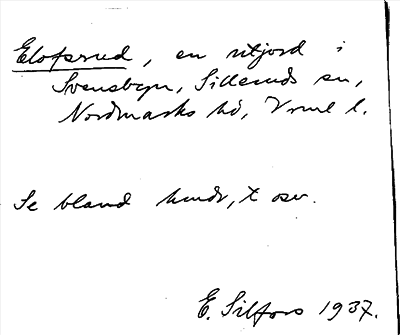 Elofsrud, en utjord i
Svensbyn, Silleruds sn,
Nordmarks hd, Vrml l.
Se bland
E. Silfors 1937.